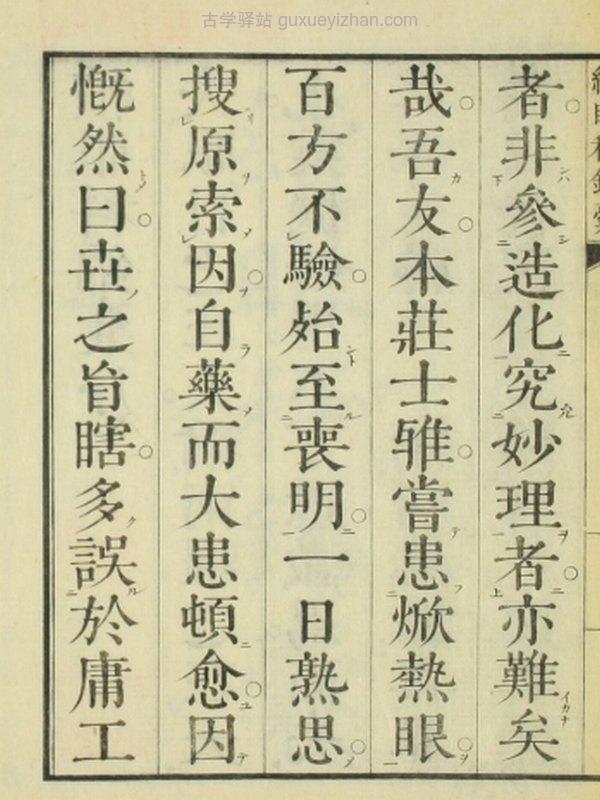 古学驿站 guxueyizhan.com
者非參造化究妙理者亦難矣
哉吾友本莊士雅嘗患焮熱眼
百方不驗殆至喪明一日熟思
搜原索因自藥而大患頓愈因
慨然曰世之盲瞎多誤於庸工